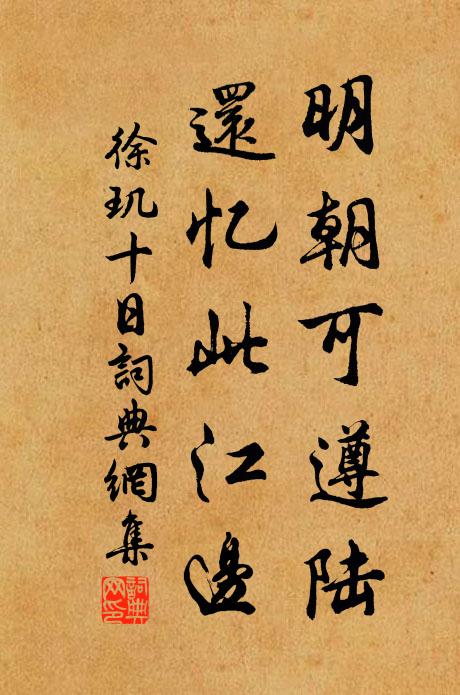 明朝可遵陆
還忆此江邊
徐玑十日詞典網集
詞典网印